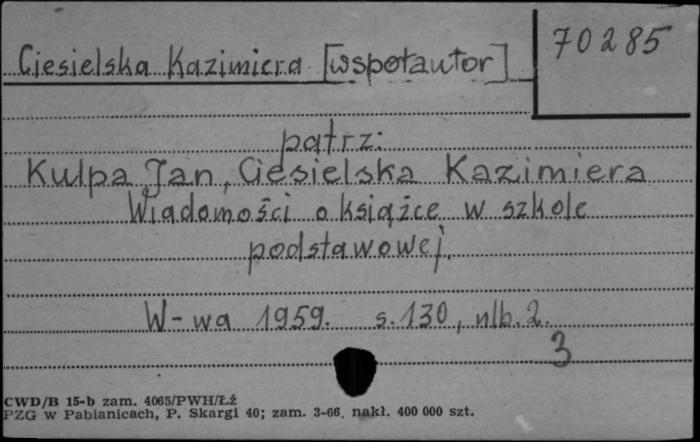 70285
Ciesielska Kazimiera [współautor]
patrz:
Kulpa Jan, Ciesielska Kazimiera
Wiadomości o książce w szkole
podstawowej.
W-wa 1959. s. 130, nlb. 2.
3
CWD/B 15-b zam. 4065/PWH/Łź
PZG w Pabianicach, P. Skargi 40; zam. 3-66. nakł. 400 000 szt.